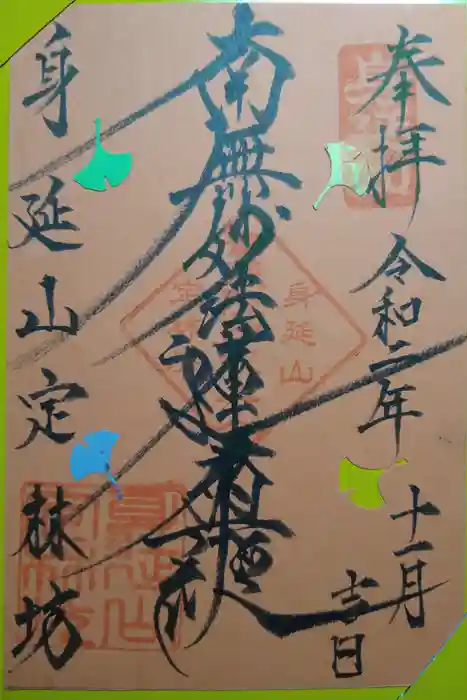 奉拝
令和二年
十一月
吉日
南無妙法蓮華経
身延山
身延山定林坊